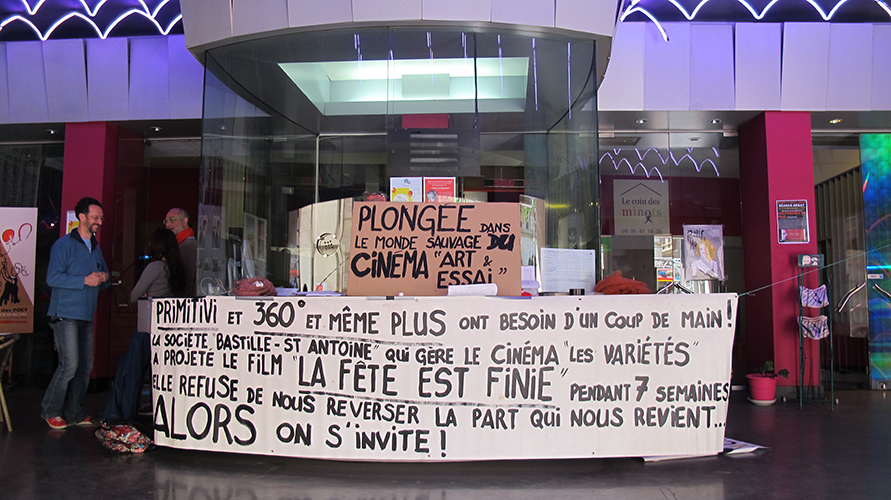 PLONGÉE DANS
LE MONDE SAUVAGE DU
CINÉMA "ART &
ESSAI"
Le coin des
minots
PRIMITIVI ET 360° ET MÊME PLUS ONT BESOIN D'UN COUP DE MAIN !
LA SOCIÉTÉ "BASTILLE-ST ANTOINE" QUI GÈRE LE CINÉMA "LES VARIÉTÉS"
A PROJETÉ LE FILM "LA FÊTE EST FINIE" PENDANT 7 SEMAINES
ELLE REFUSE DE NOUS REVERSER LA PART QUI NOUS REVIENT...
ALORS ON S'INVITE !